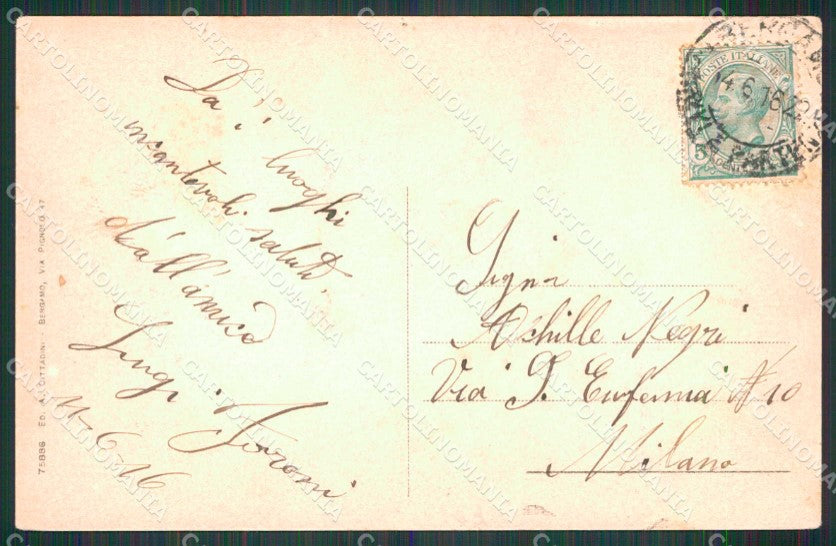 Da i luoghi
incantevoli saluti
dall'amico
Luigi Foroni
11-6-16
Sigr
Achille Negri
Via S. Eufemia N 10
Milano
POSTE ITALIANE
5
14.6.16
75886 ED. A. CITTADINI - BERGAMO, VIA PIGNOLO 47
CARTOLINOMANIA